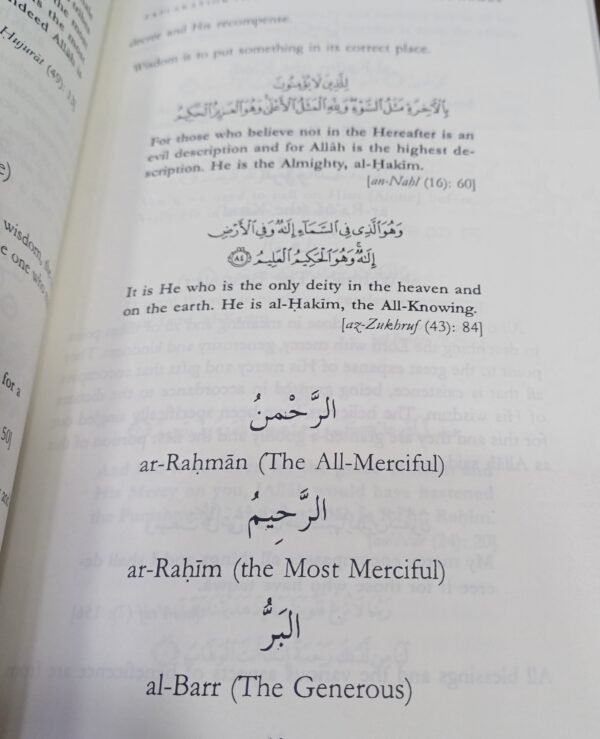 this
other
the most
is the most
ndeed Allāh is
Hujurāt (49): 13]
e)
wisdom, the
e one who
for a
50]
decree and His recompense.
Wisdom is to put something in its correct place.
لِلَّذِينَ لَا يُؤْمِنُونَ
بِالْآخِرَةِ مَثَلُ السَّوْءِ وَلِلَّهِ الْمَثَلُ الْأَعْلَىٰ وَهُوَ الْعَزِيزُ الْحَكِيمُ
For those who believe not in the Hereafter is an
evil description and for Allāh is the highest de-
scription. He is the Almighty, al-Ḥakīm.
[an-Naḥl (16): 60]
وَهُوَ الَّذِي فِي السَّمَاءِ إِلَٰهٌ وَفِي الْأَرْضِ
إِلَٰهٌ وَهُوَ الْحَكِيمُ الْعَلِيمُ ٨٤
It is He who is the only deity in the heaven and
on the earth. He is al-Ḥakīm, the All-Knowing.
[az-Zukhruf (43): 84]
الرَّحْمنُ
ar-Raḥmān (The All-Merciful)
الرَّحِيمُ
ar-Raḥīm (the Most Merciful)
البَرُّ
al-Barr (The Generous)